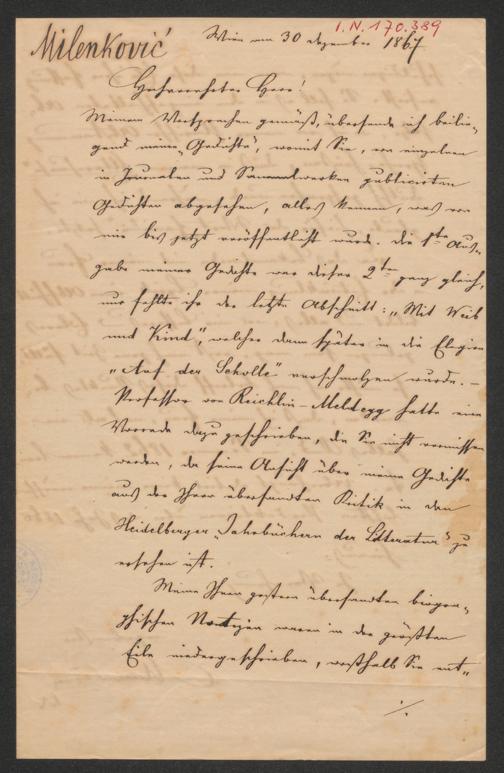 I.N. 170.389
Milenković
Wien am 30 Dezember 1867
Hochverehrter Herr!
Meinem Versprechen gemäß, übersende ich beilie-
gend meine „Gedichte“, womit Sie, von einzelnen
in Journalen und Sammelwerken publicirten
Gedichten abgesehen, alles kennen, was von
mir bis jetzt veröffentlicht wurde. Die 1te Aus-
gabe meiner Gedichte war dieser 2ten ganz gleich,
nur fehlte ihr der letzte Abschnitt: „Mit Weib
und Kind“, welcher dann später in die Elegien
„Auf der Scholle“ verschmolzen wurde. –
Professor von Reichlin-Meldegg hatte eine
Vorrede dazu geschrieben, die Sie nicht vermissen
werden, da seine Ansicht über meine Gedichte
aus der Ihnen übersandten Kritik in den
Heidelberger „Jahrbüchern der Litteratur“ zu
ersehen ist.
Meine Ihnen gestern übersandten biogra-
phischen Notizen waren in der größten
Eile niedergeschrieben, weßhalb Sie ent-
./.